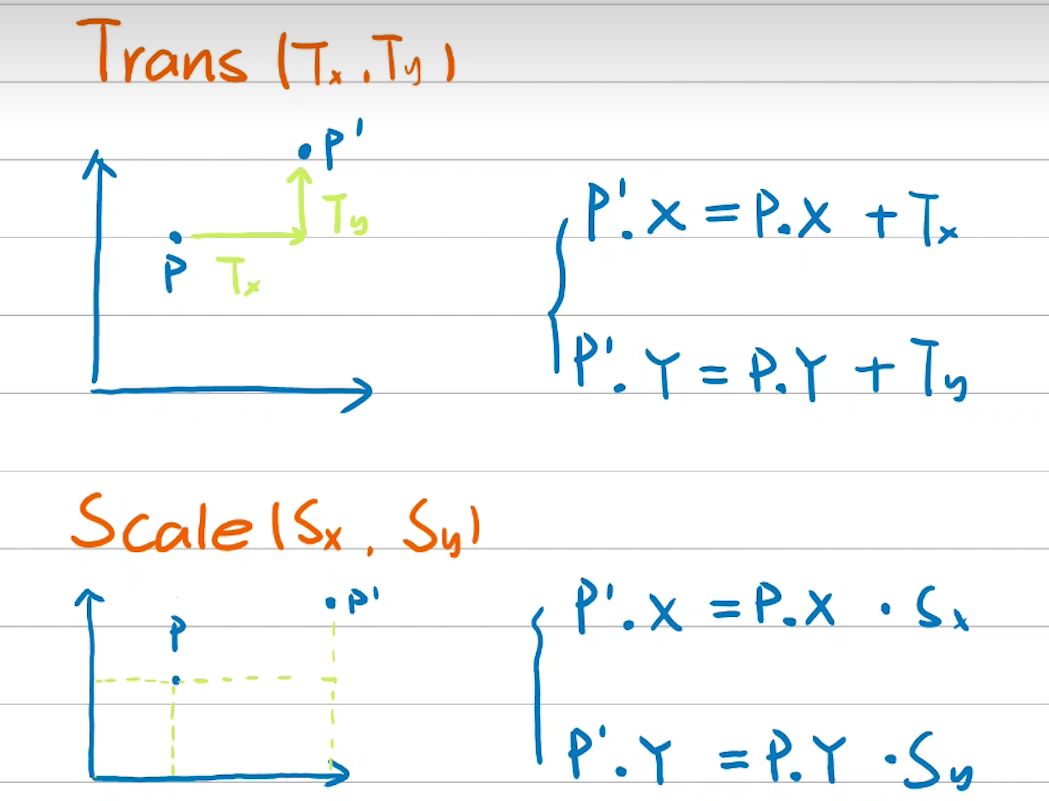 Trans (Tx, Ty)
P'
Ty
P
Tx
P'.X = P.X + Tx
P'.Y = P.Y + Ty
Scale (Sx, Sy)
P'
P
P'.X = P.X · Sx
P'.Y = P.Y · Sy